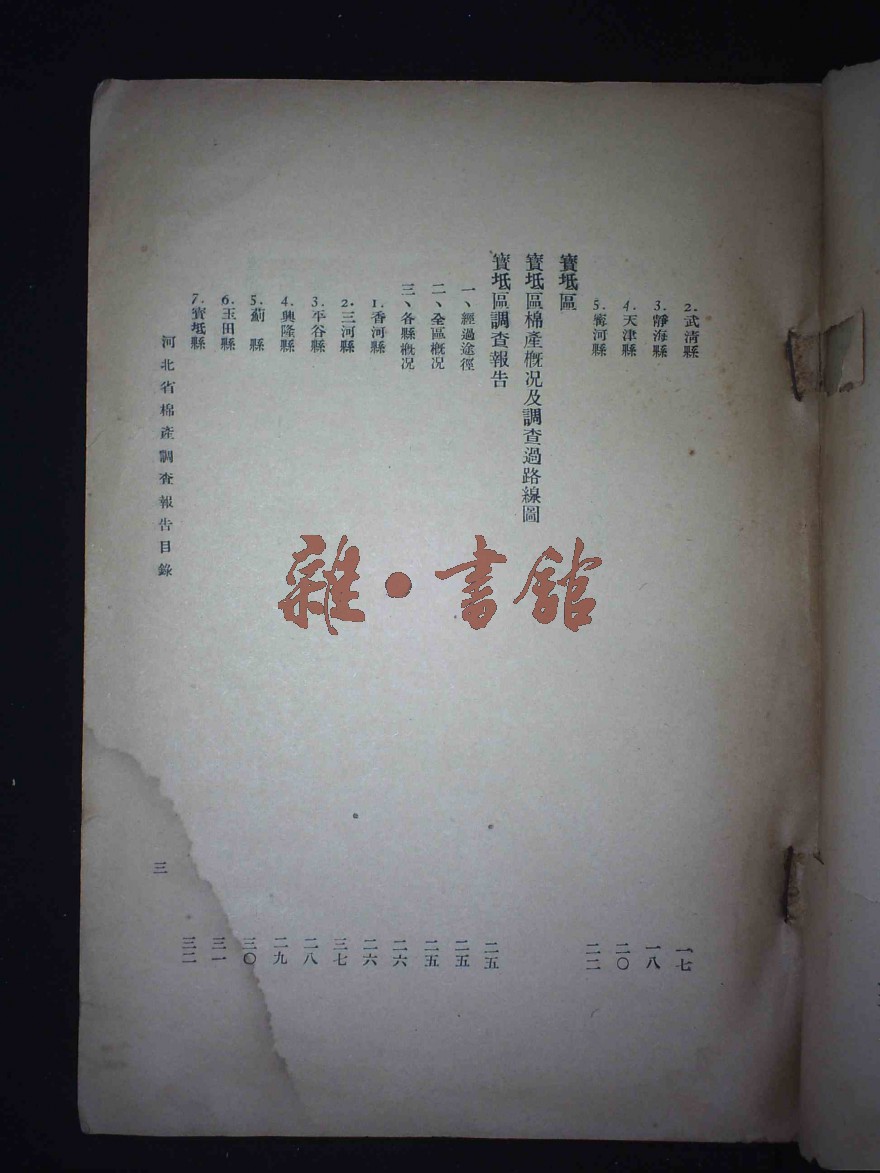 2.武清縣 一七
3.靜海縣 一八
4.天津縣 二〇
5.寗河縣 二二
寶坻區
寶坻區棉產概况及調查過路線圖
寶坻區調查報告 二五
一、經過途徑 二五
二、全區概况 二五
三、各縣概况 二六
1.香河縣 二六
2.三河縣 三七
3.平谷縣 二八
4.興隆縣 二九
5.薊 縣 三〇
6.玉田縣 三一
7.寶坻縣 三二
河北省棉產調查報告目錄 三
雜•書館